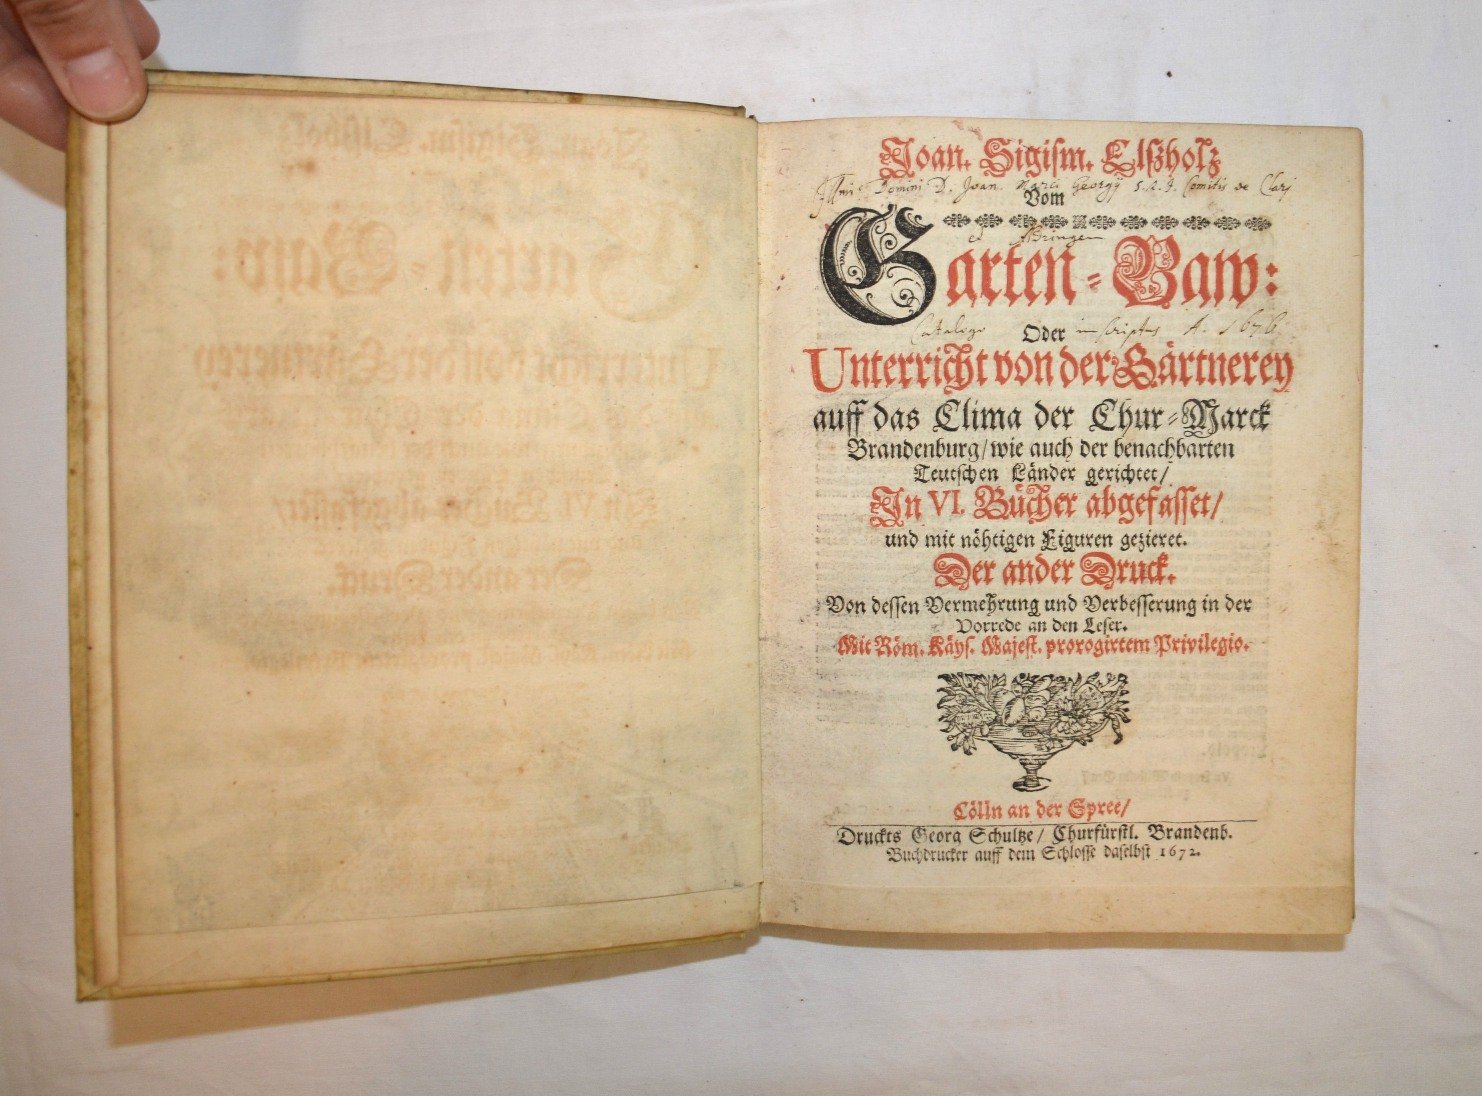 Joan. Sigism. Elßholz
Domini D. Joan. Marci Georgÿ S. R. I. Comitis de Clarj
Vom
et Aldringen
Garten-Baw:
Catalogo inscriptus A. 1676
Oder
Unterricht von der Gärtnerey
auff das Clima der Chur-Marck
Brandenburg/ wie auch der benachbarten
Teutschen Länder gerichtet/
In VI. Bücher abgefasset/
und mit nöhtigen Figuren gezieret.
Der ander Druck.
Von dessen Vermehrung und Verbesserung in der
Vorrede an den Leser.
Mit Röm. Käys. Majest. prorogirtem Privilegio.
Cölln an der Spree/
Druckts Georg Schultze/ Churfürstl. Brandenb.
Buchdrucker auff dem Schlosse daselbst 1672.